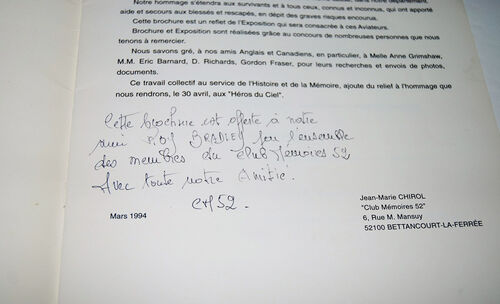 Notre hommage s'étendra aux survivants et à tous ceux, connus et inconnus, qui ont apporté
aide et secours aux blessés et rescapés, en dépit des graves risques encourus.
Cette brochure est un reflet de l'Exposition qui sera consacrée à ces Aviateurs.
Brochure et Exposition sont réalisées grâce au concours de nombreuses personnes que nous
tenons à remercier.
Nous savons gré, à nos amis Anglais et Canadiens, en particulier, à Melle Anne Grimshaw,
M.M. Eric Barnard, D. Richards, Gordon Fraser, pour leurs recherches et envois de photos,
documents.
Ce travail collectif au service de l'Histoire et de la Mémoire, ajoute du relief à l'hommage
que nous rendrons, le 30 avril, aux "Héros du Ciel".
Cette brochure est offerte à notre
ami BRADLEY par l'ensemble
des membres du Club Mémoires 52
Avec toute notre Amitié.
CM52.
Mars 1994
Jean-Marie CHIROL
"Club Mémoires 52"
6, Rue M. Mansuy
52100 BETTANCOURT-LA-FERRÉE